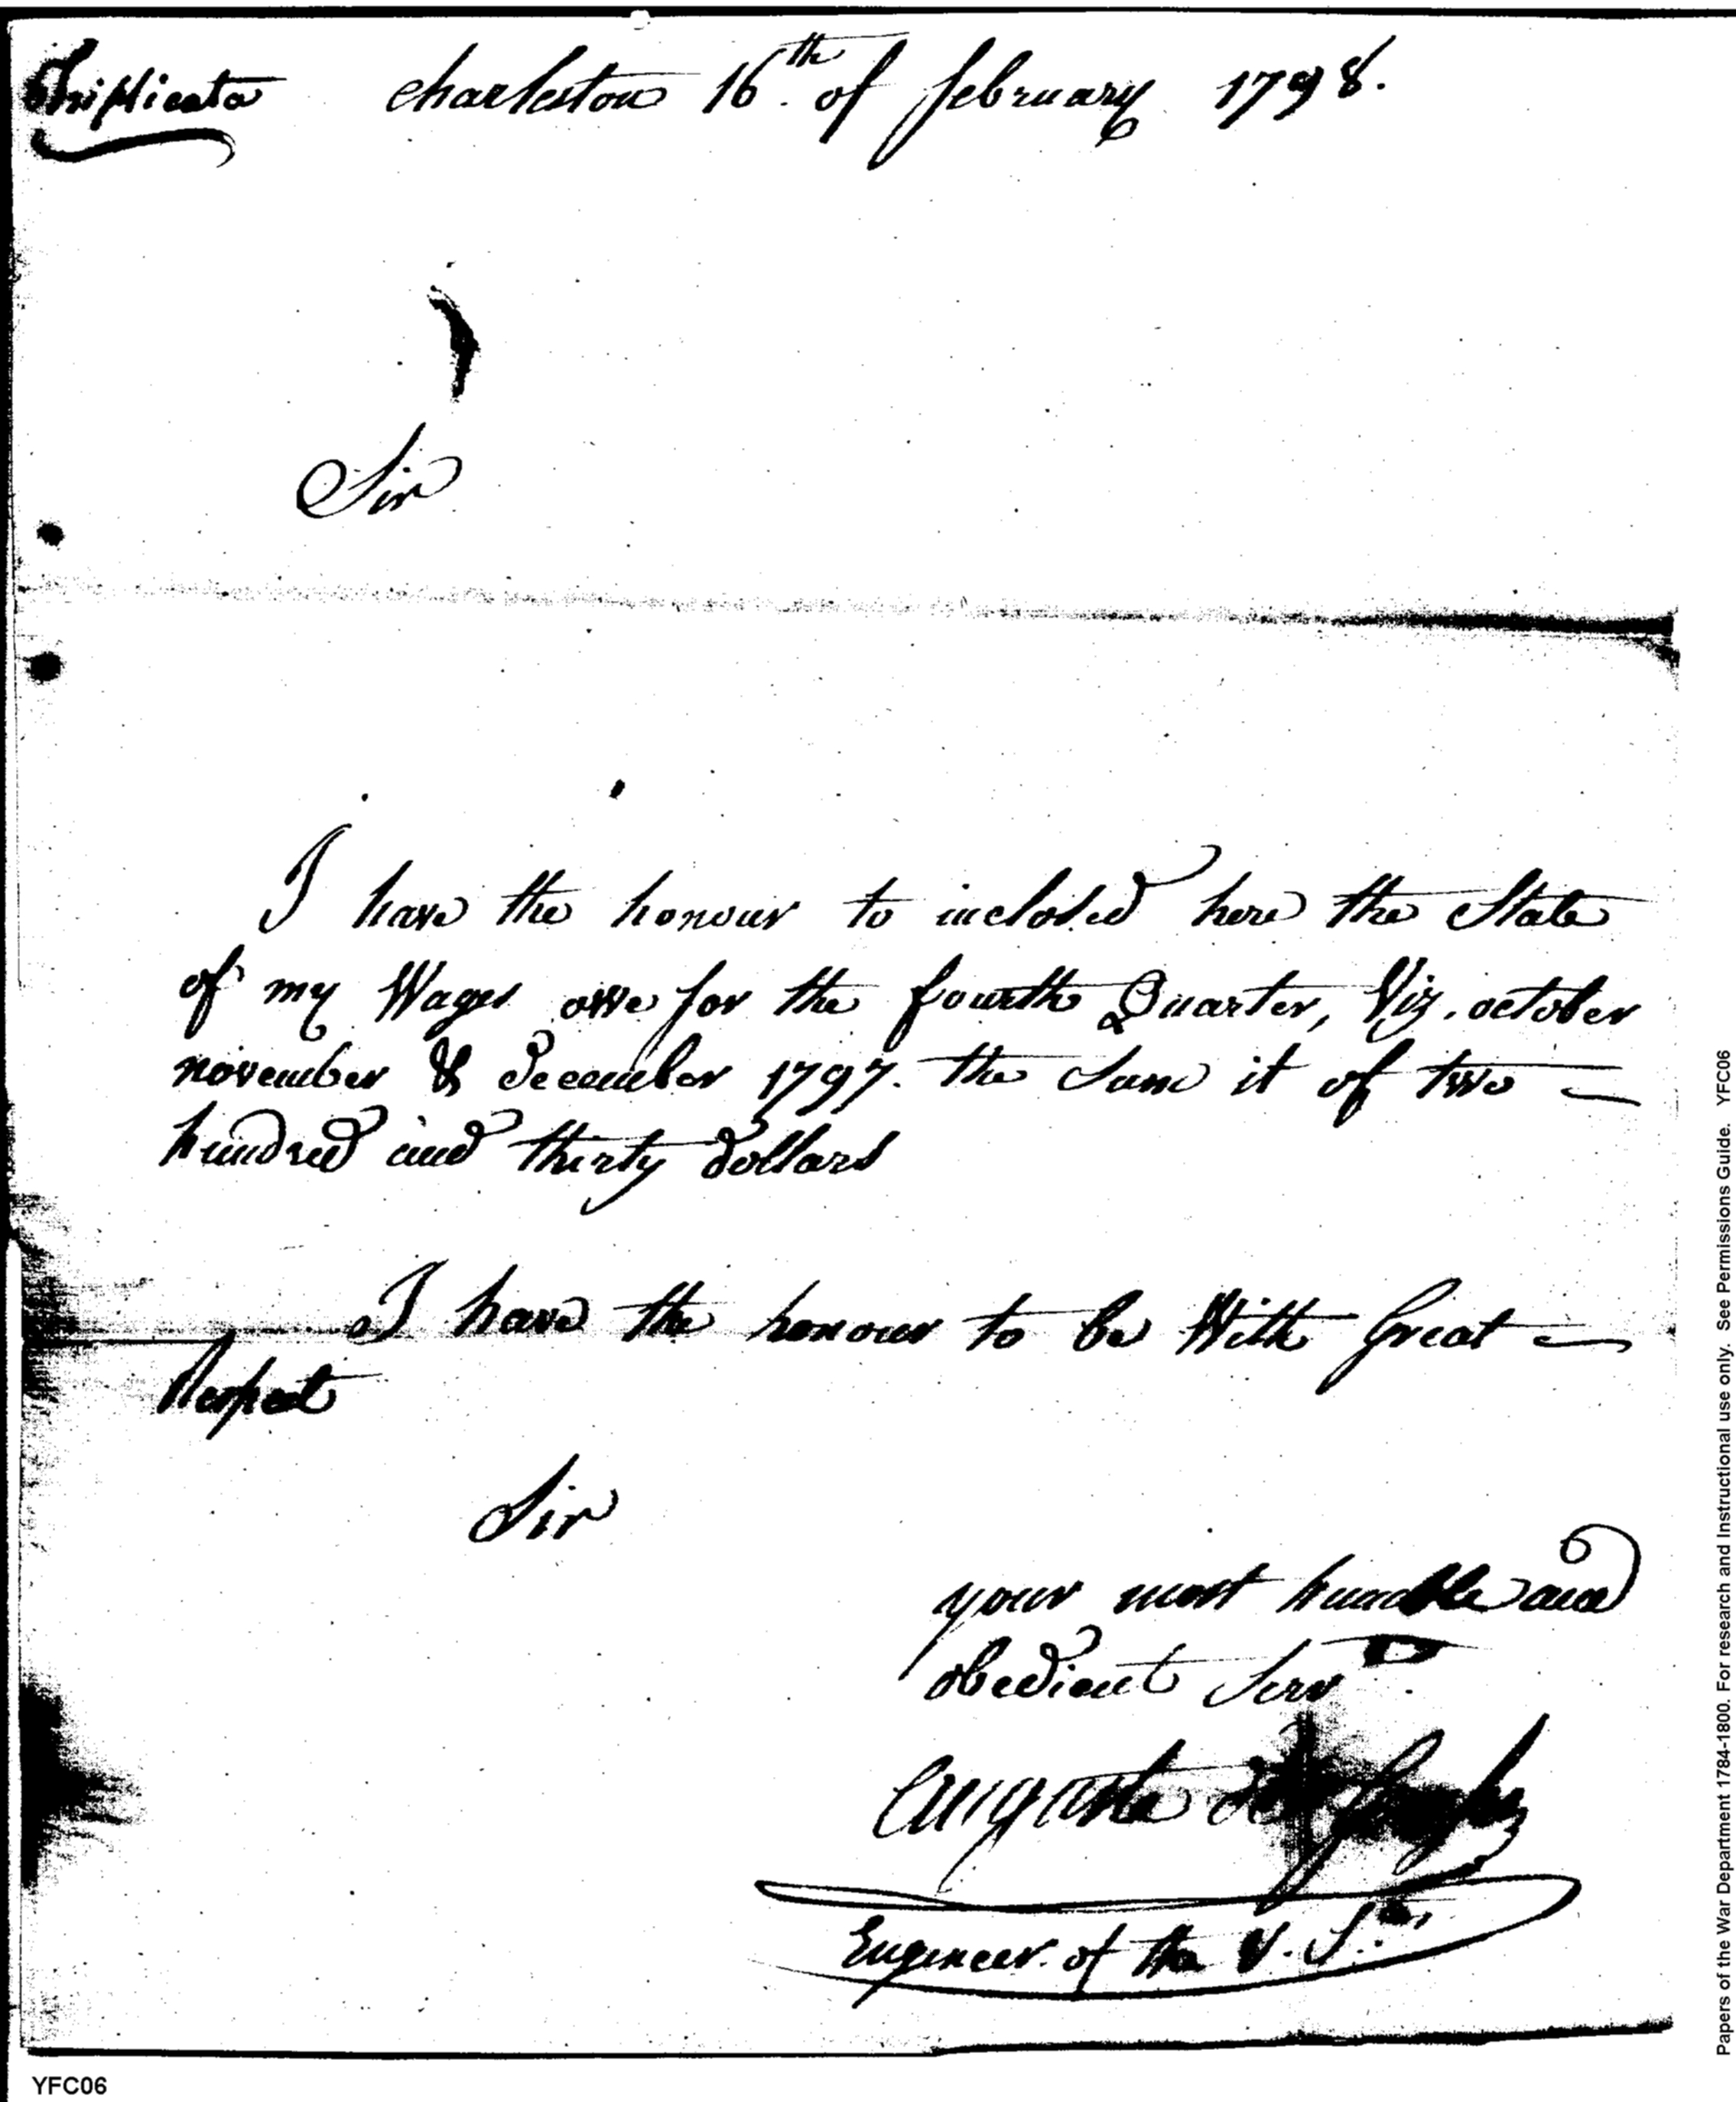 Triplicata charleston 16th. of february 1798.
Sir
I have the honour to inclosed here the State
of my Wages owe for the fourth Quarter, Viz. october
november & December 1797. the Sum it of two
hundred and thirty dollars
I have the honour to be With Great
Respect
Sir
your most humble and
obedient Servt.
Auguste
Engineer of the U. S.
Papers of the War Department 1784-1800. For research and Instructional use only. See Permissions Guide. YFC06
YFC06